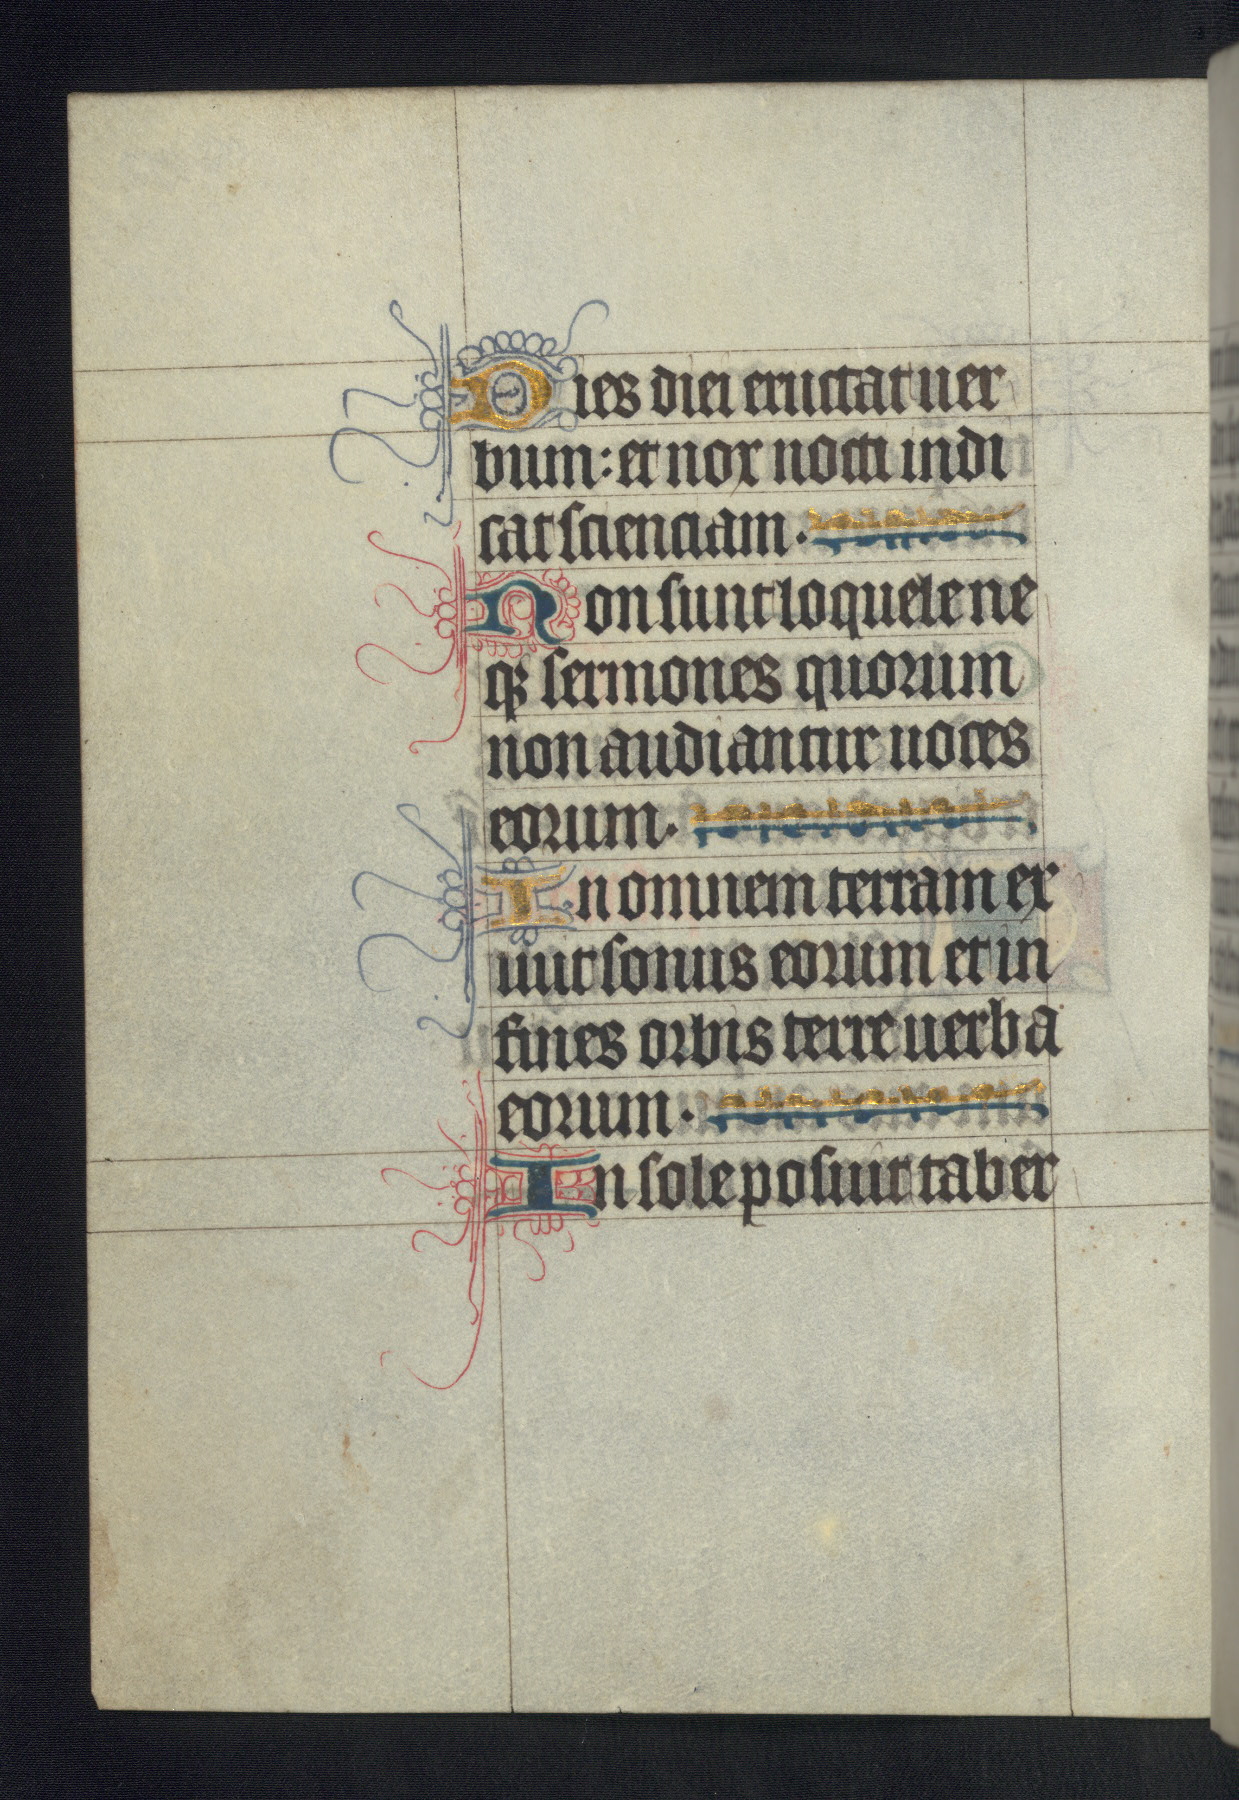 Dies diei eructat uer
bum: et nox nocti indi
cat scienciam.
Non sunt loquele ne
qꝫ sermones quorum
non audiantur uoces
eorum.
In omnem terram ex
iuit sonus eorum et in
fines orbis terre uerba
eorum.
In sole posuit taber